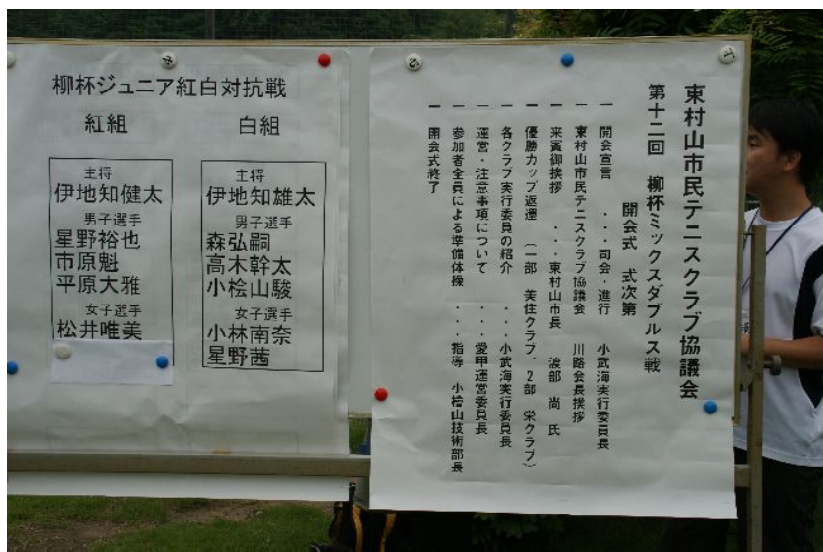 柳杯ジュニア紅白対抗戦
紅組
主将
伊地知健太
男子選手
星野裕也
市原魁
平原大雅
女子選手
松井唯美
白組
主将
伊地知雄太
男子選手
森弘嗣
高木幹太
小桧山駿
女子選手
小林南奈
星野茜
東村山市民テニスクラブ協議会
第十二回 柳杯ミックスダブルス戦
開会式 式次第
一 開会宣言 ・・・司会・進行 小武海実行委員長
一 東村山市民テニスクラブ協議会 川路会長挨拶
一 来賓御挨拶 ・・・東村山市長 渡部 尚 氏
一 優勝カップ返還 (一部 美住クラブ、2部 栄クラブ)
一 各クラブ実行委員の紹介 ・・・小武海実行委員長
一 運営・注意事項について ・・・愛甲運営委員長
一 参加者全員による準備体操 ・・・指導 小桧山技術部長
一 開会式終了